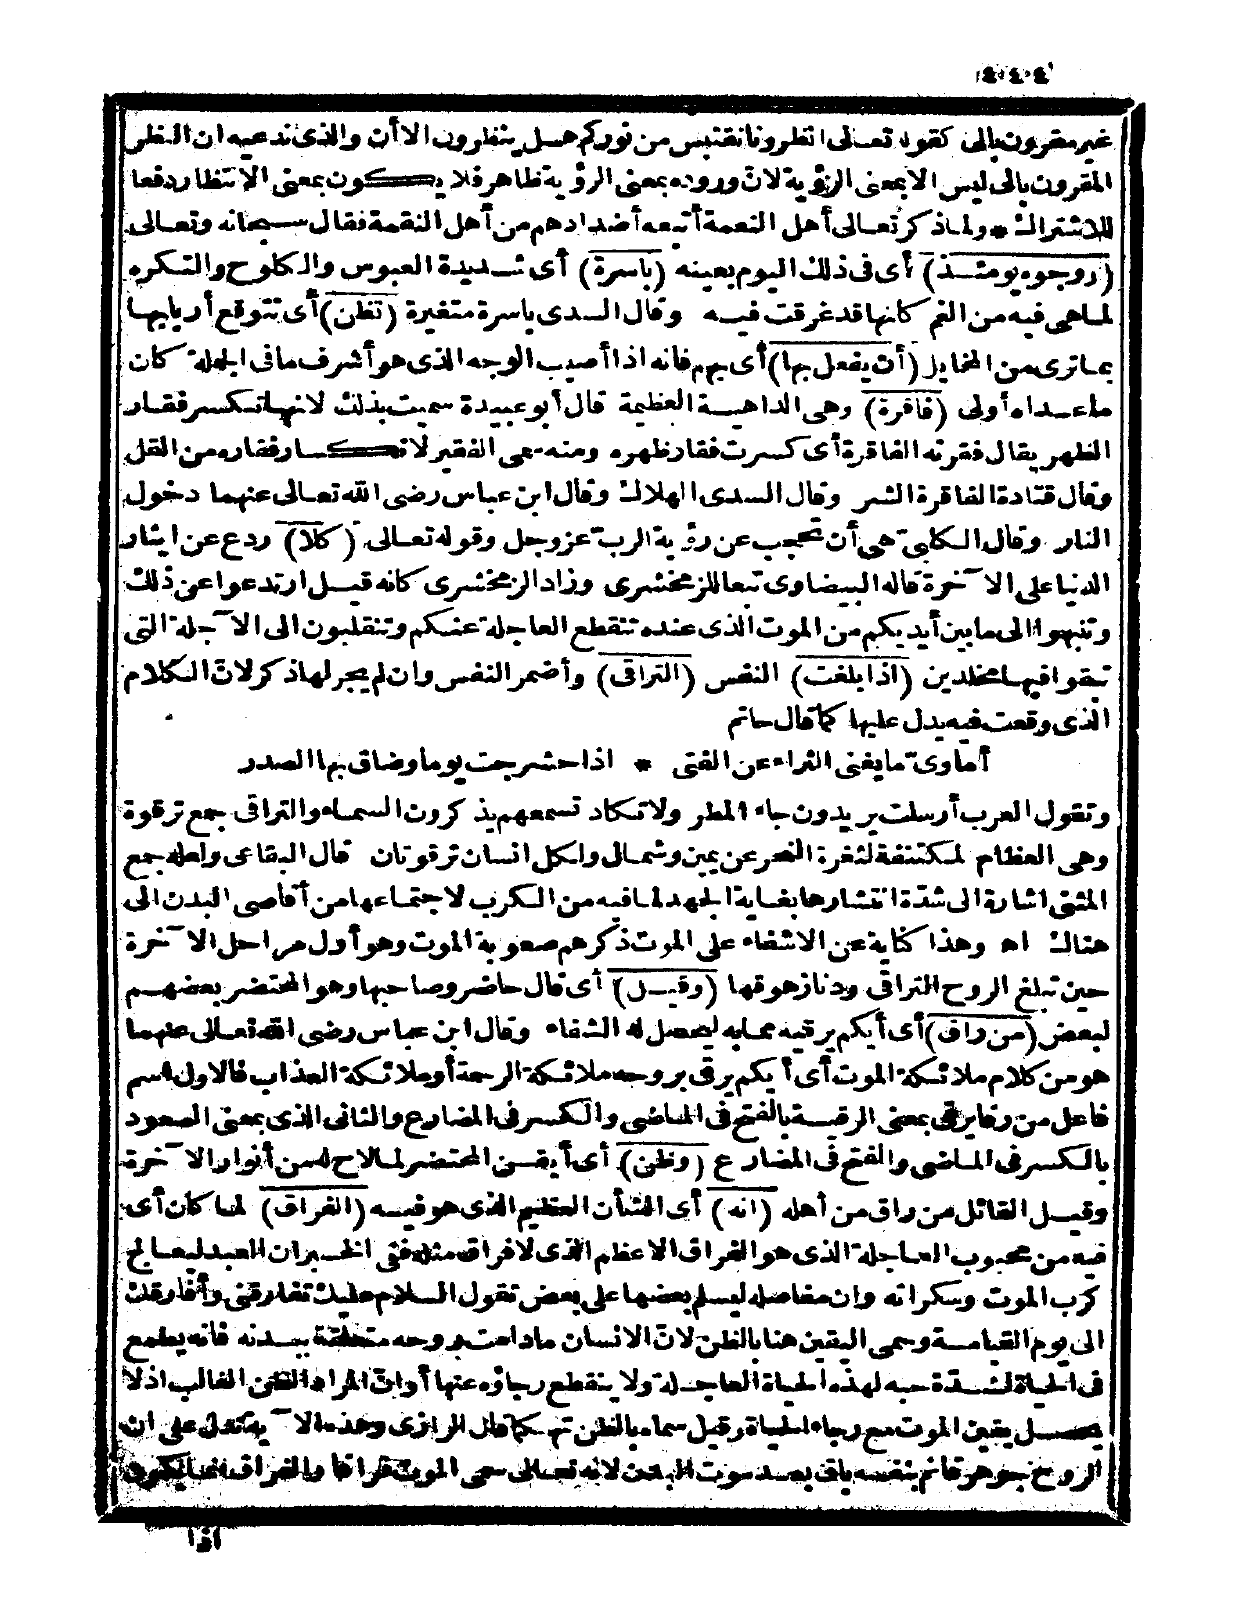 ٤٠٤
غير مقرون بالى كقوله تعالى انظرونا نقتبس من نوركم هل ينظرون الا أن والذى ندعيه ان النظر
المقرون بالى ليس الا بمعنى الرؤية لانّ وروده بمعنى الرؤية ظاهر فلا يكون بمعنى الانتظار دفعا
للاشتراك * ولما ذكر تعالى أهل النعمة أتبعه أضدادهم من أهل النقمة فقال سبحانه وتعالى
(ووجوه يومئذ) أى فى ذلك اليوم بعينه (باسرة) أى شديدة العبوس والكلوح والتكره
لما هى فيه من الغم كانها قد غرقت فيه وقال السدى باسرة متغيرة (تظن) أى تتوقع أربابها
بما ترى من المخايل (أن يفعل بها) أى بهم فانه اذا أصيب الوجه الذى هو أشرف ما فى الجملة كان
ما عداه أولى (فاقرة) وهى الداهية العظيمة قال أبو عبيدة سميت بذلك لانها تكسر فقار
الظهر يقال فقرته الفاقرة أى كسرت فقار ظهره ومنه سمى الفقير لانكسار فقاره من القل
وقال قتادة الفاقرة الشر وقال السدى الهلاك وقال ابن عباس رضى الله تعالى عنهما دخول
النار وقال الكلبىّ هى أن تحجب عن رؤية الرب عز وجل وقوله تعالى (كلا) ردع عن ايثار
الدنيا على الآخرة قاله البيضاوى تبعا للزمخشرى وزاد الزمخشرى كانه قيل ارتدعوا عن ذلك
وتنبهوا الى ما بين أيديكم من الموت الذى عنده تنقطع العاجلة عنكم وتنقلبون الى الآجلة التى
تبقوا فيها مخلدين (اذا بلغت) النفس (التراقى) وأضمر النفس وان لم يجر لها ذكر لانّ الكلام
الذى وقعت فيه يدل عليها كما قال حاتم
أماوىّ ما يغنى الثراء عن الفتى * اذا حشرجت يوما وضاق بها الصدر
وتقول العرب أرسلت يريدون جاء المطر ولا تكاد تسمعهم يذكرون السماء والتراقى جمع ترقوة
وهى العظام المكتنفة لثغرة النحر عن يمين وشمال ولكل انسان ترقوتان قال البقاعى ولعله جمع
المثنى اشارة الى شدّة انتشارها بغاية الجهد لما فيه من الكرب لاجتماعها من أقاصى البدن الى
هناك اه وهذا كناية عن الاشفاء على الموت ذكرهم صعوبة الموت وهو أول مراحل الآخرة
حين تبلغ الروح التراقى ودنا زهوقها (وقيل) أى قال حاضر وصاحبها وهو المحتضر بعضهم
لبعض (من راق) أى أيكم يرقيه مما به ليحصل له الشفاء وقال ابن عباس رضى الله تعالى عنهما
هو من كلام ملائكة الموت أى أيكم يرقى بروحه ملائكة الرحمة أو ملائكة العذاب فالاول اسم
فاعل من رقا يرقى بمعنى الرقية بالفتح فى الماضى والكسر فى المضارع والثانى الذى بمعنى الصعود
بالكسر فى الماضى والفتح فى المضارع (وظن) أى أيقن المحتضر لما لاح له من أنوار الآخرة
وقيل القائل من راق من أهله (انه) أى الشأن العظيم الذى هو فيه (الفراق) لما كان أى
فيه من محبوب العاجلة الذى هو الفراق الاعظم الذى لا فراق مثله ففى الخبر ان العبد ليعالج
كرب الموت وسكراته وان مفاصله ليسلم بعضها على بعض تقول السلام عليك تفارقنى وأفارقك
الى يوم القيامة وسمى اليقين هنا بالظن لانّ الانسان ما دامت روحه متعلقة ببدنه فانه يطمع
فى الحياة لشدّة حبه لهذه الحياة العاجلة ولا ينقطع رجاؤه عنها أو انّ المراد الظن الغالب اذ لا
يحصل يقين الموت مع رجاء الحياة وقيل سماه بالظن تهكما قال الرازى وهذه الآية تدل على ان
الروح جوهر قائم بنفسه باق بعد موت البدن لانه تعالى سمى الموت فراقا والفراق انما يكون
اذا